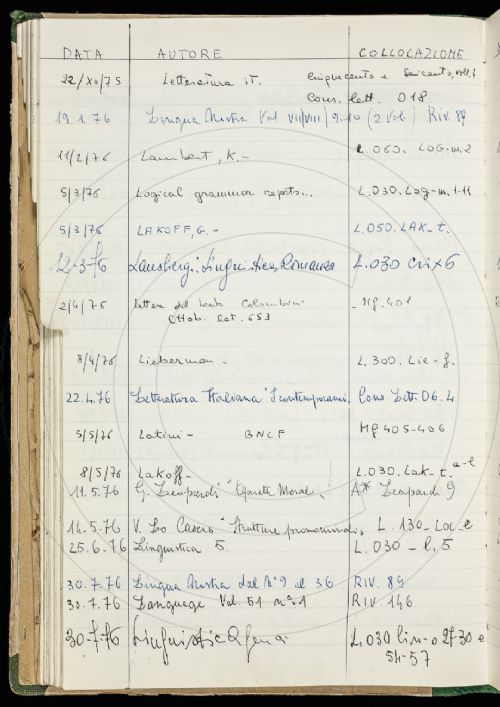 DATA AUTORE COLLOCAZIONE
22/XII/75 Letteratura it. Cinquecento e Seicento, voll. 
Cons. Lett. 018
19.1.76 Lingua Nostra Vol. VII/VIII/9-10 (2 Vol) RIV. 89
11/2/76 Lambert, K. - L.060. LOG-m.2
5/3/76 Logical grammar reports... L.030. Log-m. 1-11
5/3/76 LAKOFF, G. - L.050. LAK-t.
12-3-76 Lausberg: Linguistica Romanza L.030
2/4/76 Lettere del beato Colombini - Mg. 401
Ottob. Lat. 653
8/4/76 Lieberman - L. 300. Lie-f.
22.4.76 Letteratura Italiana "I contemporanei, Cons. Lett. 06.4
5/5/76 Latini - BNCF Mg 405-406
8/5/76 Lakoff - L.030. Lak-t. a-e
11.5.76 G. Leopardi "Operette Morali" A* Leopardi 9
14.5.76 V. Lo Cascio "Strutture pronominali" L. 130_Loc-e
25.6.76 Linguistica 5. L.030 - l.5
30.7.76 Lingua Nostra dal N° 9 al 36 RIV. 89
30.7.76 Language Vol. 51 n° 1 RIV 146
30-7-76 L.030 lin-o 27-30 e
54-57